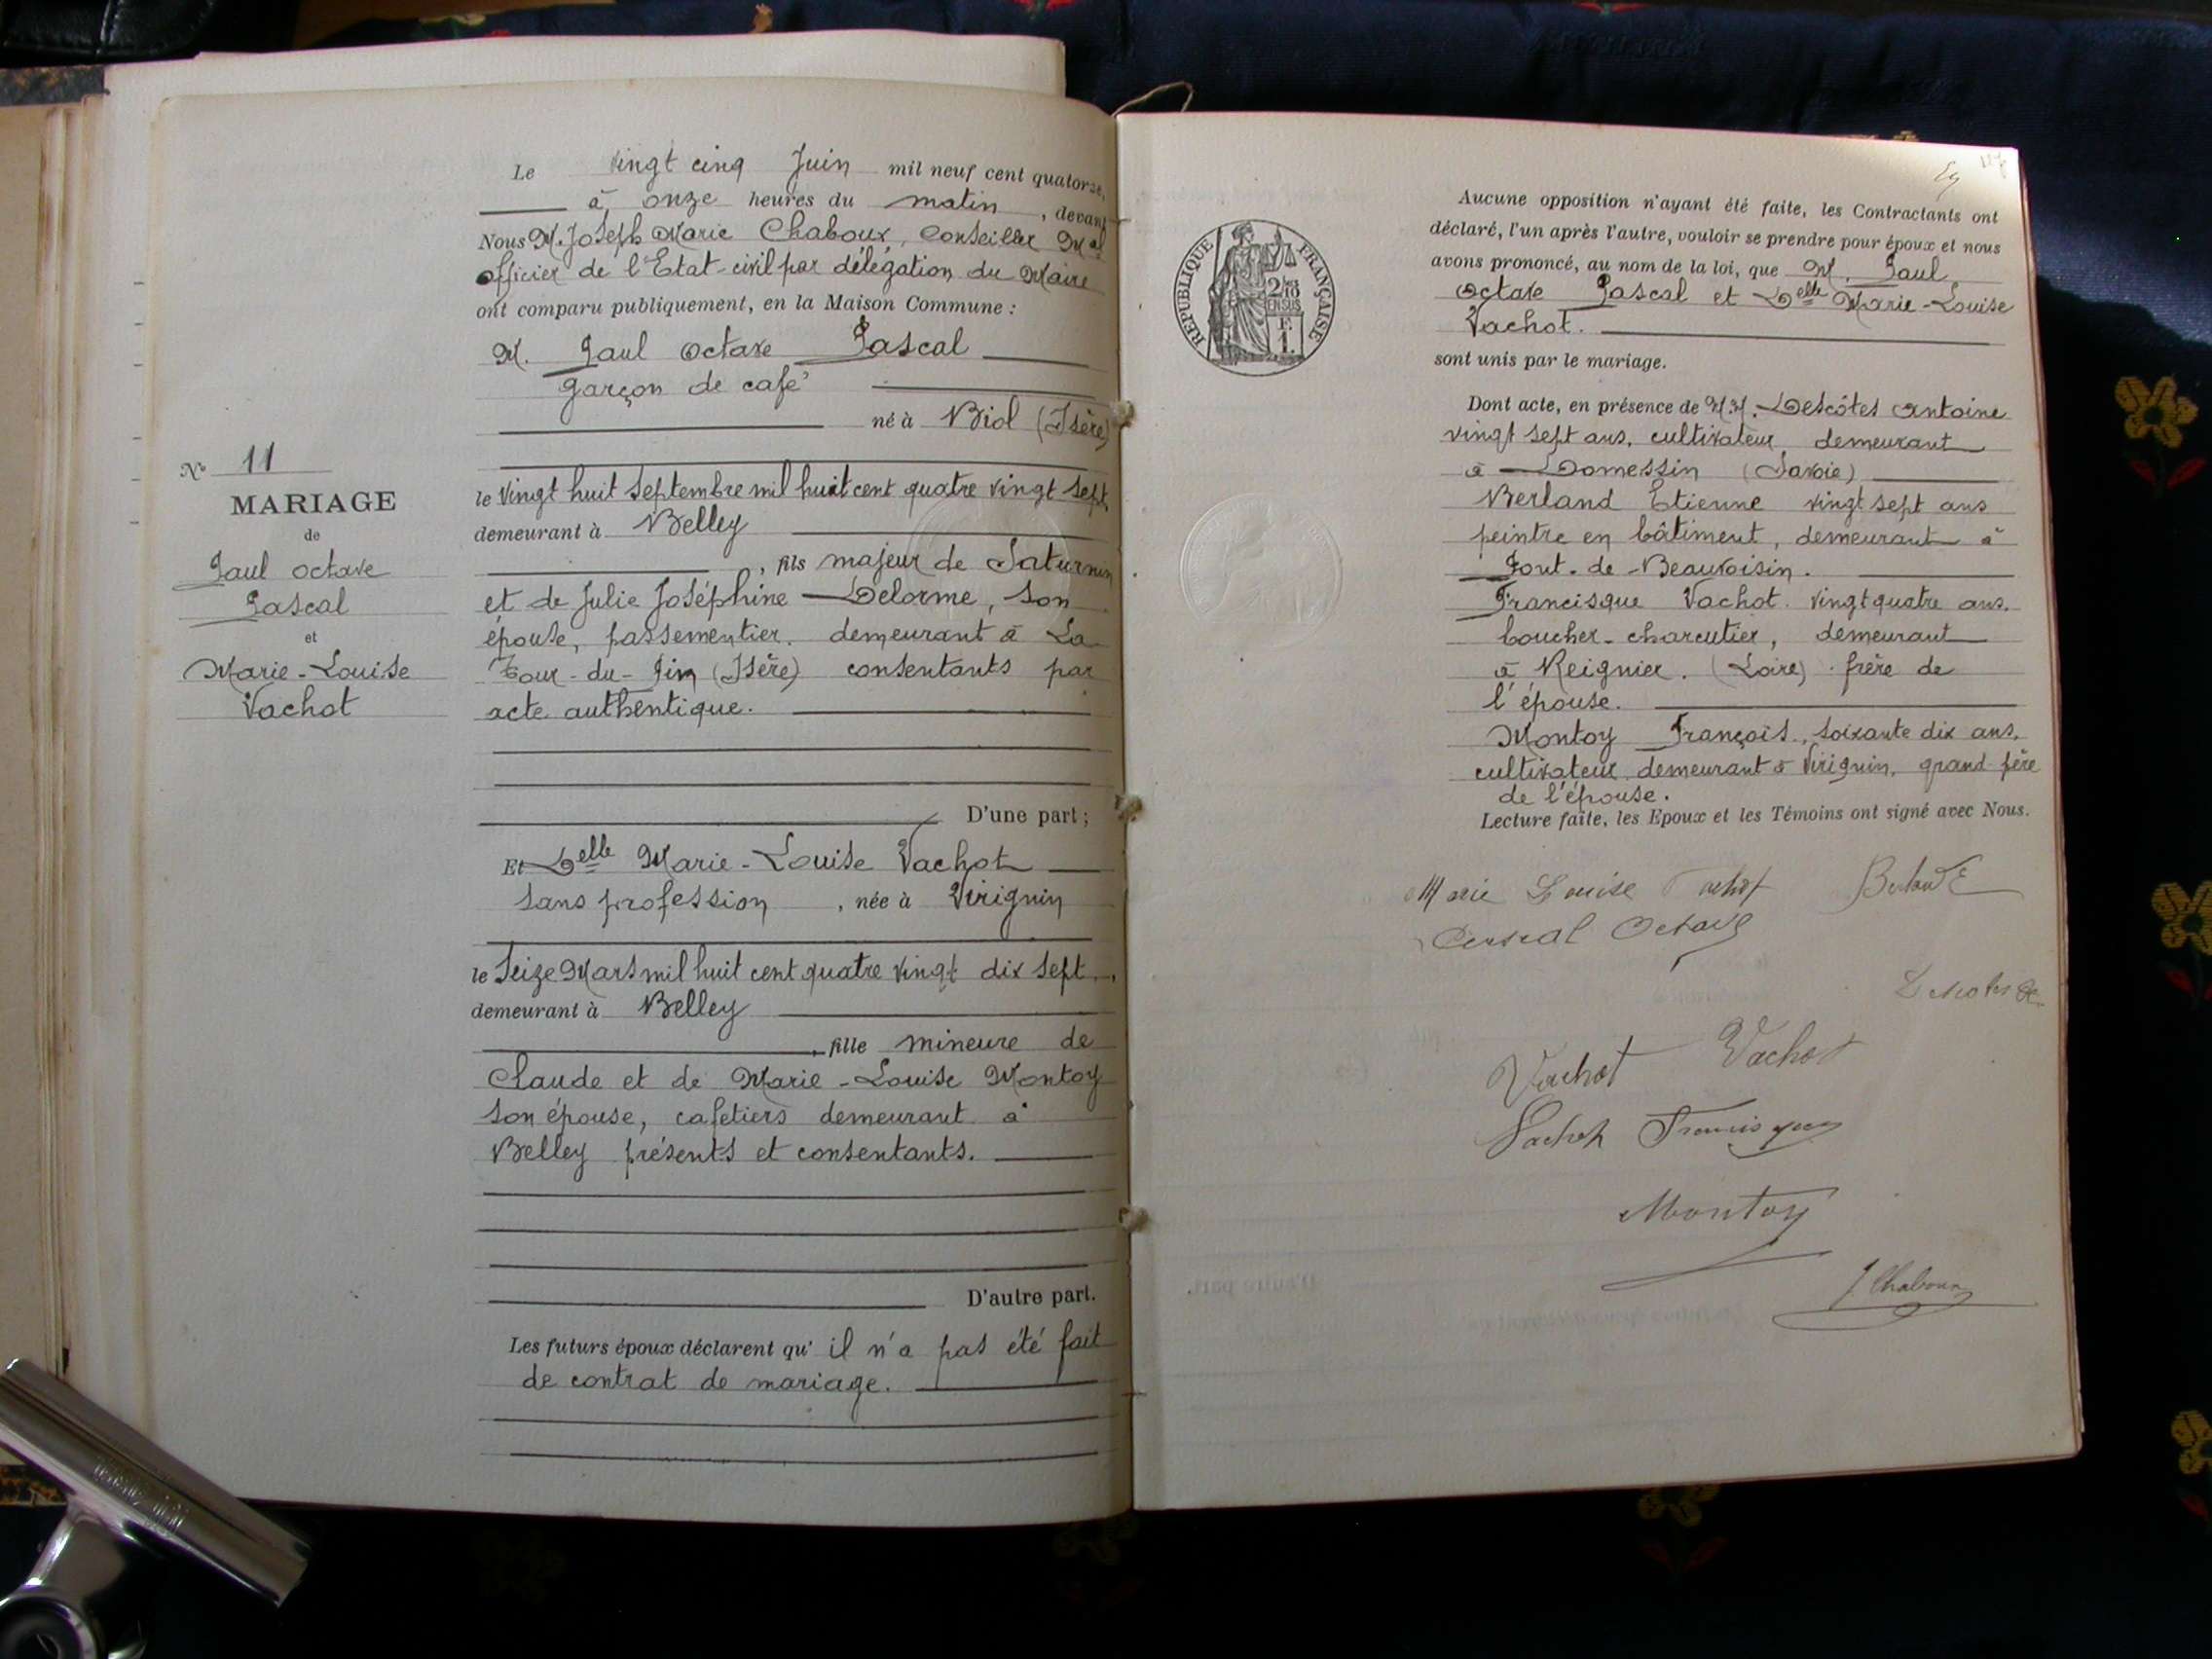 N° 11
MARIAGE
de
Paul Octave
Pascal
et
Marie-Louise
Vachot
Le vingt cinq Juin mil neuf cent quatorze,
à onze heures du matin, devant
Nous M. Joseph Marie Chaboux, Conseiller Mal
officier de l'Etat-civil par délégation du Maire
ont comparu publiquement, en la Maison Commune :
M. Paul Octave Pascal
garçon de café
né à Biol (Isère)
le vingt huit Septembre mil huit cent quatre vingt sept,
demeurant à Belley
, fils majeur de Saturnin
et de Julie Joséphine Delorme, son
épouse, passementier. demeurant à La
Tour-du-Pin (Isère) consentants par
acte authentique.
D'une part ;
Et Delle Marie-Louise Vachot
sans profession, née à Virignin
le Seize Mars mil huit cent quatre vingt dix sept,
demeurant à Belley
, fille mineure de
Claude et de Marie-Louise Montoy
son épouse, cafetiers demeurant à
Belley présents et consentants.
D'autre part.
Les futurs époux déclarent qu'il n'a pas été fait
de contrat de mariage.
RÉPUBLIQUE FRANÇAISE
2/10
EN SUS
F.
1.
127
Aucune opposition n'ayant été faite, les Contractants ont
déclaré, l'un après l'autre, vouloir se prendre pour époux et nous
avons prononcé, au nom de la loi, que M. Paul
Octave Pascal et Delle Marie-Louise
Vachot.
sont unis par le mariage.
Dont acte, en présence de M.M. Descôtes Antoine
vingt sept ans, cultivateur demeurant
à Domessin (Savoie)
Berland Etienne vingt sept ans
peintre en bâtiment, demeurant à
Pont-de-Beauvoisin.
Francisque Vachot. vingt quatre ans.
boucher-charcutier, demeurant
à Reignier. (Loire) frère de
l'épouse.
Montoy François, soixante dix ans,
cultivateur demeurant à Virignin, grand-père
de l'épouse.
Lecture faite, les Epoux et les Témoins ont signé avec Nous.
Marie Louise Vachot
Pascal Octave
Vachot Vachot
Vachot Francisque
Montoy
J Chaboux